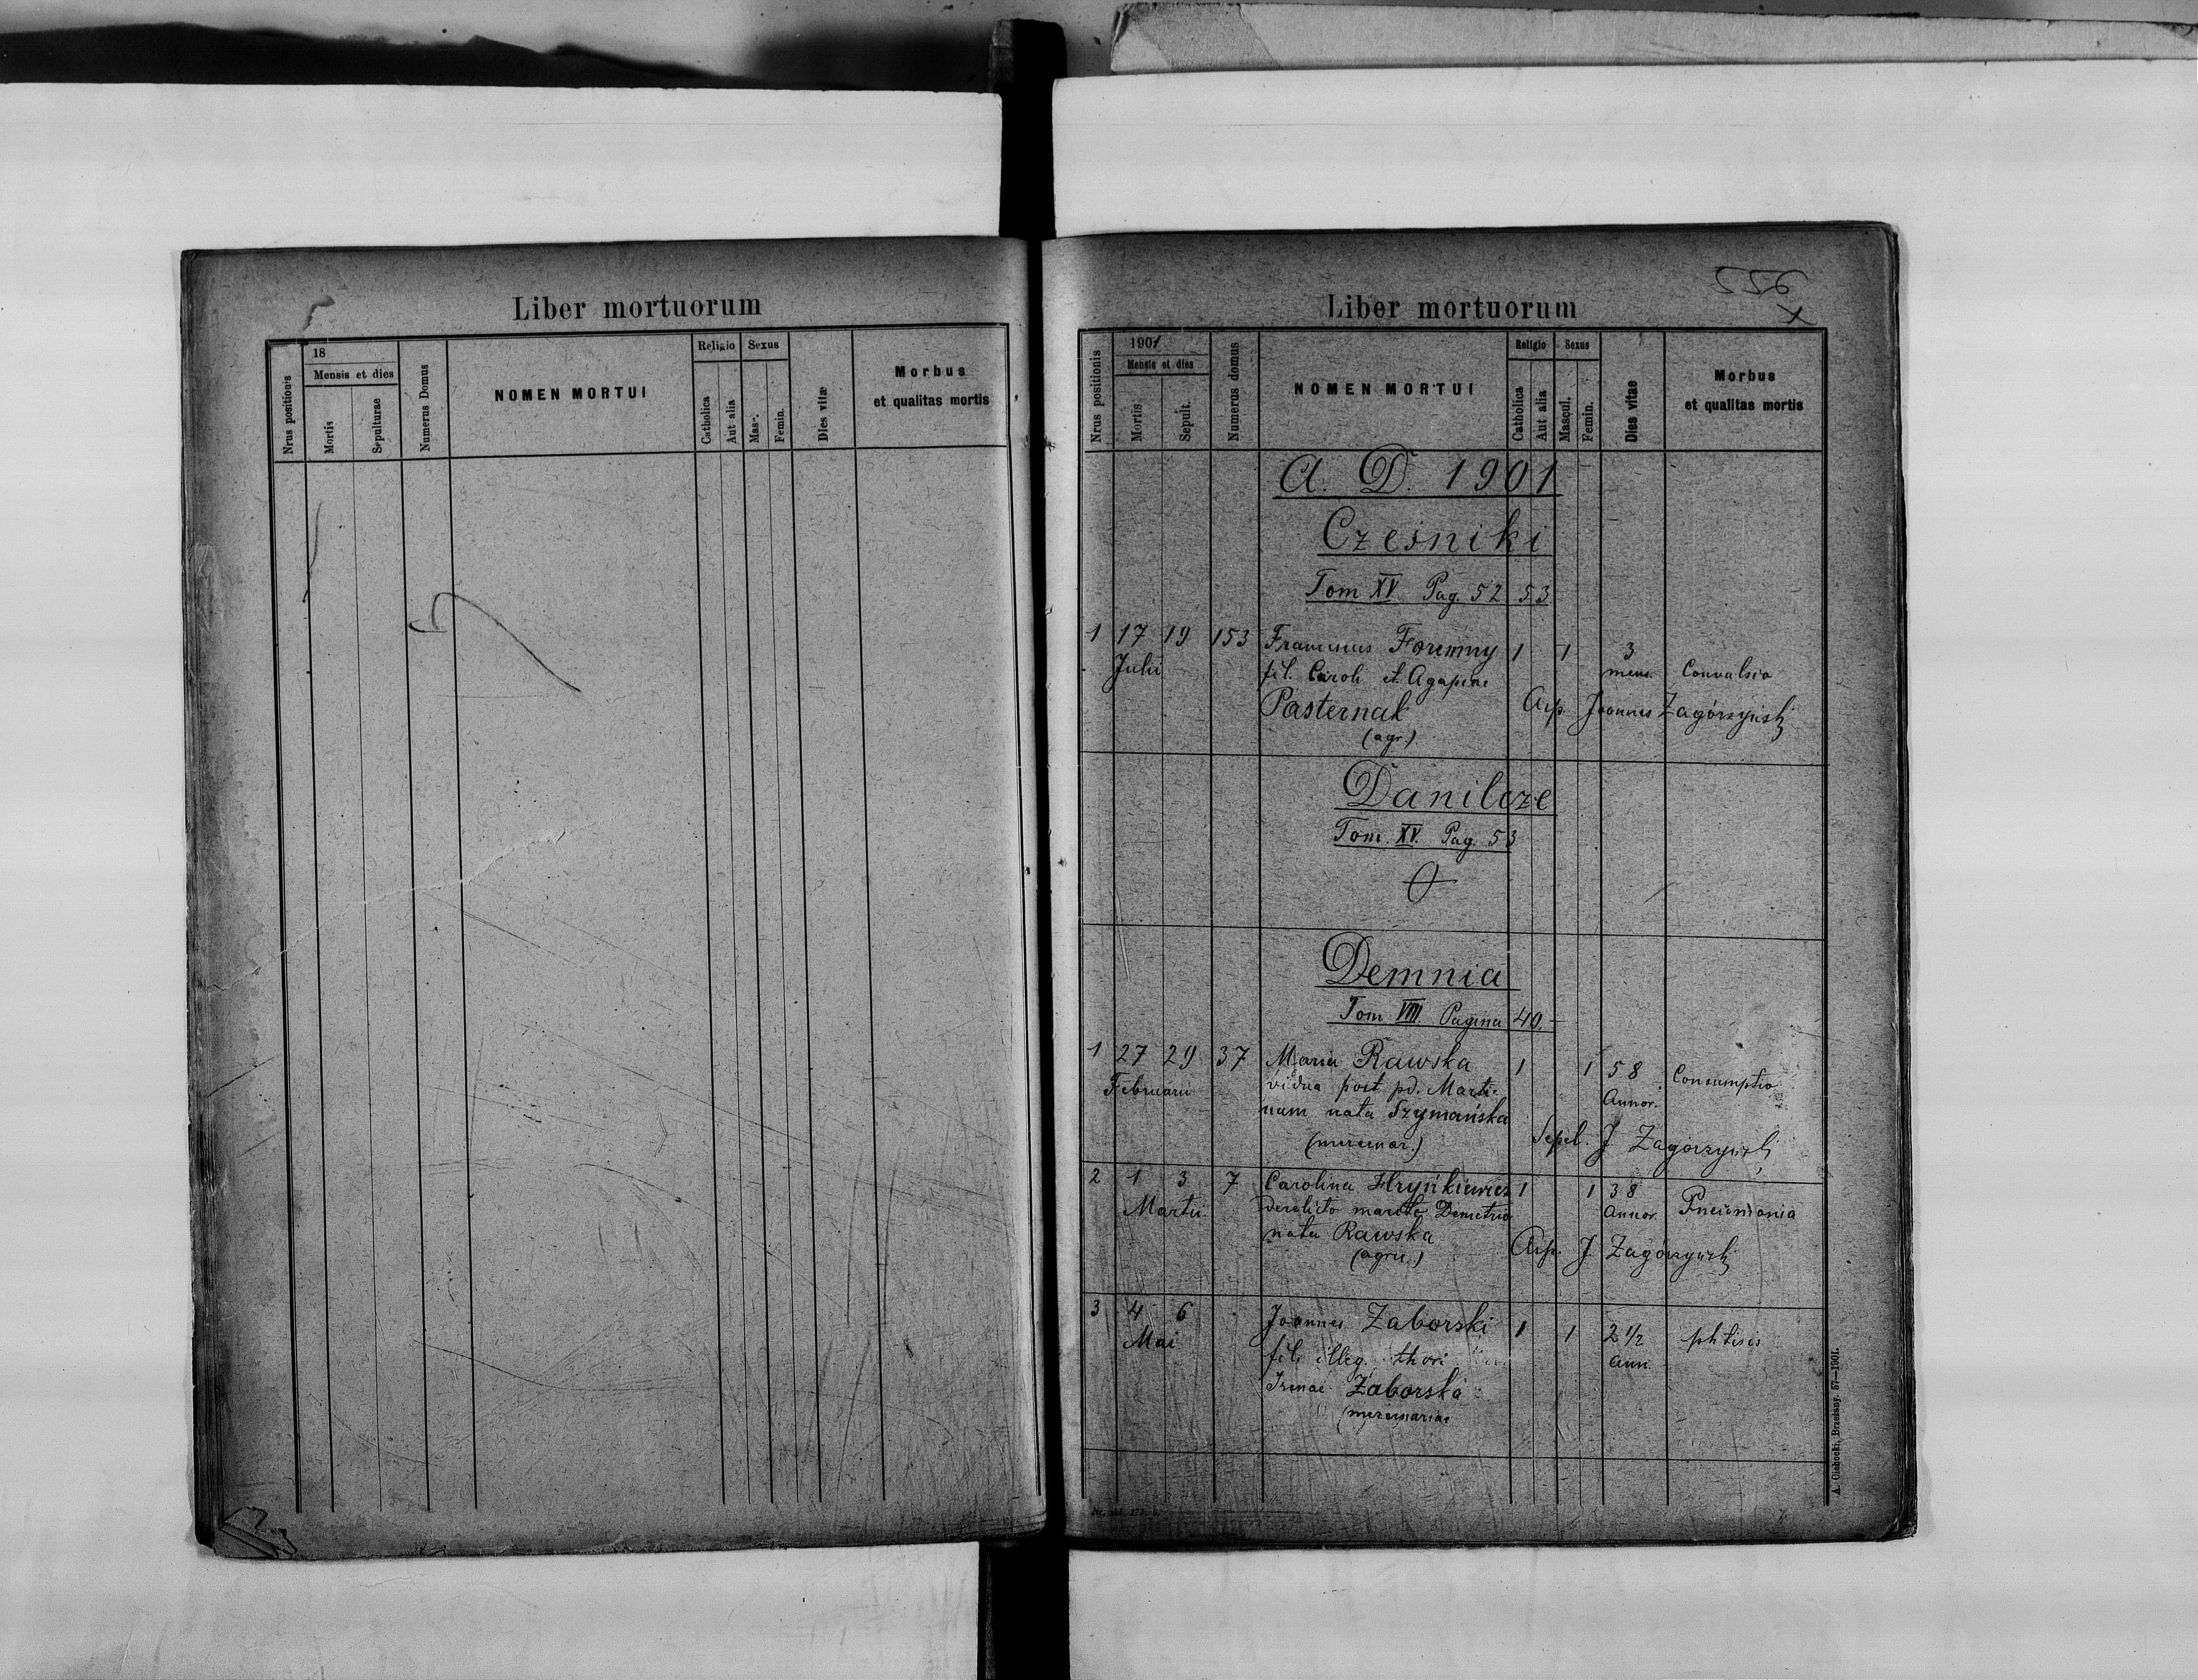 Liber mortuorum
Nrus positionis
18
Mensis et dies
Mortis
Sepulturae
Numerus Domus
NOMEN MORTUI
Religio
Catholica
Aut alia
Sexus
Masc.
Femin.
Dies vitæ
Morbus
et qualitas mortis
556
x
Liber mortuorum
Nrus positionis
1901
Mensis et dies
Mortis
Sepult.
Numerus domus
NOMEN MORTUI
Religio
Catholica
Aut alia
Sexus
Mascul.
Femin.
Dies vitae
Morbus
et qualitas mortis
A. D. 1901
Cześniki
Tom XV. Pag. 52 53
1 17 19 153 Franciscus Foremny 1 1 3
Julii fil. Caroli et Agapiae mens. Convulsio
Pasternak Asp. Joannes Zagórzyński
(agr.)
Danilcze
Tom. XV. Pag. 53
0
Demnia
Tom VIII. Pagina 40.
1 27 29 37 Maria Rawska 1 1 58 Consumptio
Februarii vidua post pd. Marti- Annor.
num nata Szymańska
(mercenar.) Sepel. J Zagórzyński
2 1 3 7 Carolina Hryńkiewicz 1 1 38 Pneumonia
Martii derelicto marito Demetrio Annor.
nata Rawska Asp. J Zagórzyński
(agric.)
3 4 6 Joannes Zaborski 1 1 2 1/2 phtisis
Mai fil. illeg. thori ann.
Irenae Zaborska
(mercenariae
A. Ciebocki, Brzeżany. 57—1901.